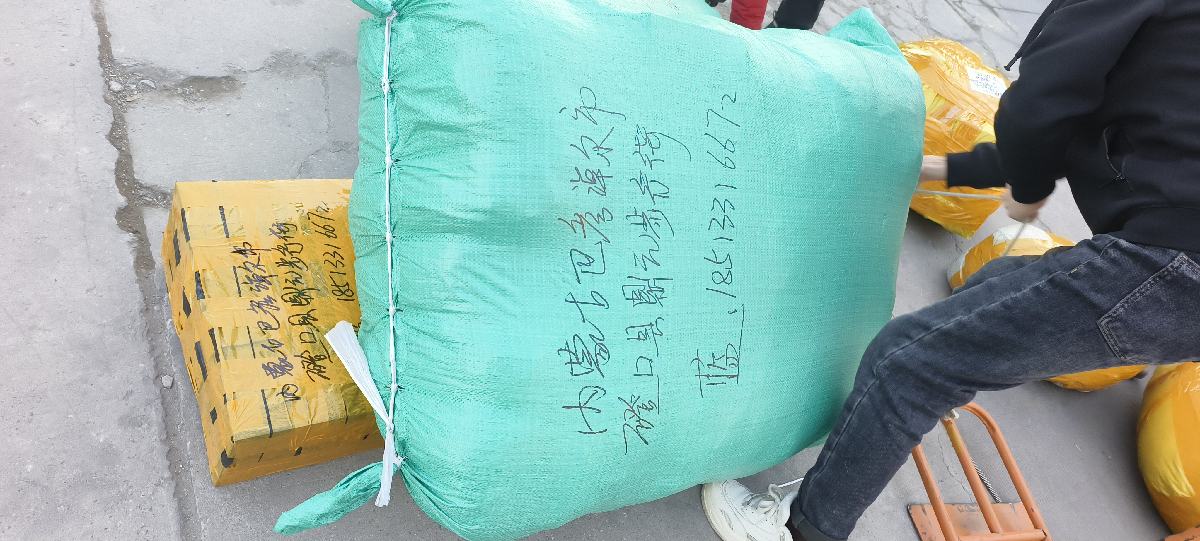 内蒙古巴彦淖尔市
磴口县鼎元步行街
18513316672
内蒙古巴彦淖尔市
磴口县鼎元步行街
蓝、18513316672